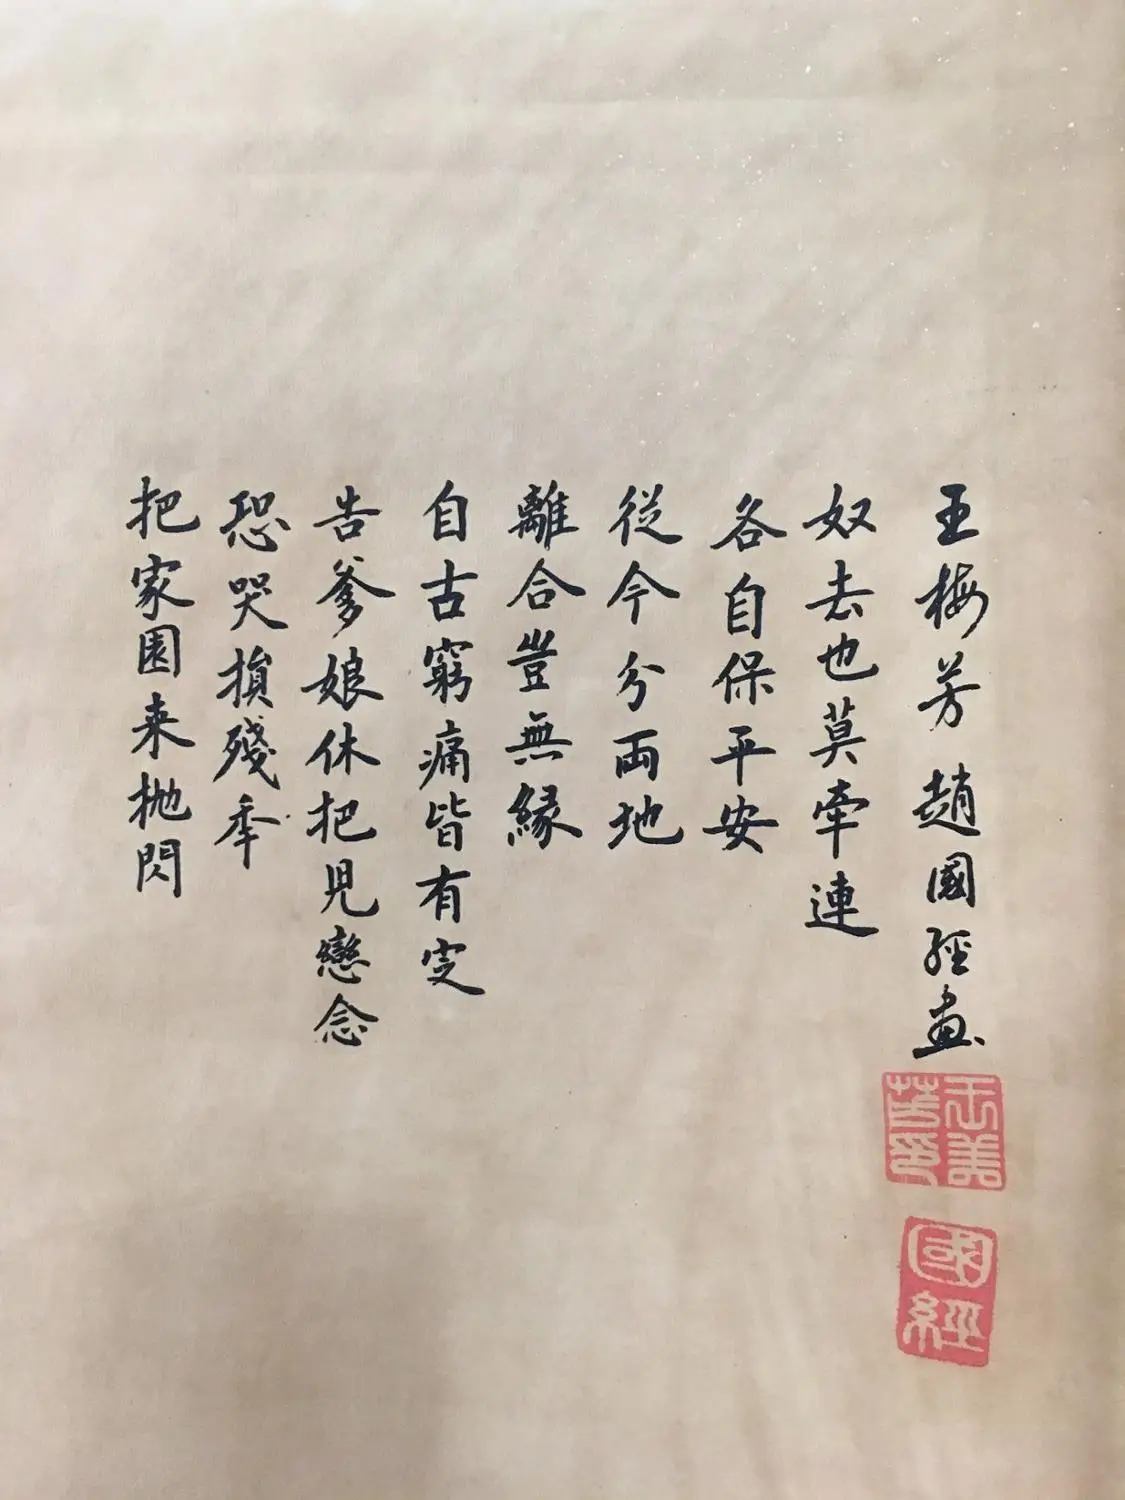 把家園来抛閃
恐哭損殘秊
告爹娘休把児戀念
自古窮痛皆有定
離合豈無縁
從今分両地
各自保平安
奴去也莫牽連
王梅芳 趙國經畫
王美芳印
國經